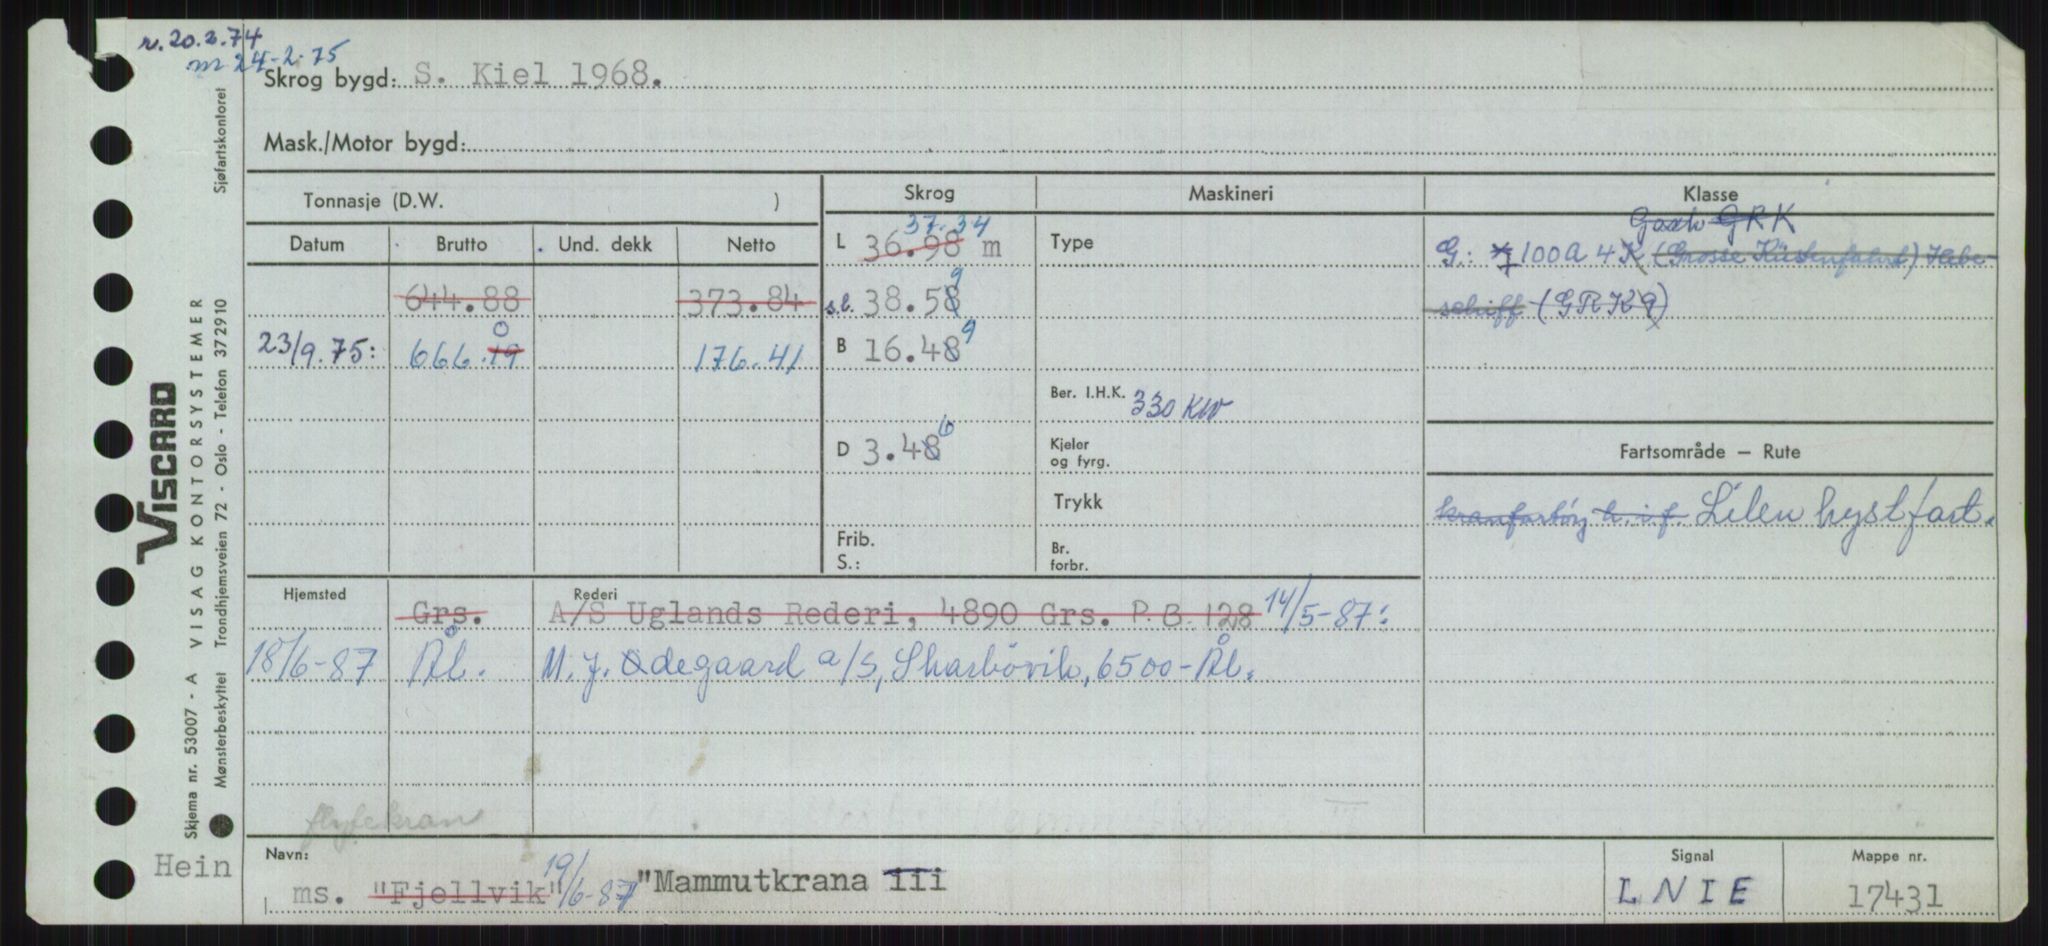 r. 20.2.74
m 24-2-75
Skrog bygd: S. Kiel 1968.
Mask./Motor bygd:
Tonnasje (D.W. )
Skrog
Maskineri
Klasse
Datum
Brutto
Und. dekk
Netto
L 36.98 m 37.34
Type
Gach GRK
G: 100 A 4 K (Grosse Küstenfahrt) Hebe-
schiff (GRK9)
644.88
373.84
s.l. 38.58 9
23/9.75: 666.19 0
176.41
B 16.48 9
Ber. I.H.K. 330 KW
D 3.48 6
Kjeler
og fyrg.
Fartsområde – Rute
Trykk
kranfartöy h.i.f. Liten kystfart.
Frib.
S.:
Br.
forbr.
Hjemsted
Rederi
Grs. A/S Uglands Rederi, 4890 Grs. P.B. 128 14/5-87:
18/6-87 Ål. M. J. Ødegaard a/s, Skarbövik, 6500-Ål.
flytekran
Navn:
ms. "Fjellvik" 19/6-87 "Mammutkrana III
Signal
LNIE
Mappe nr.
17431
Hein
VISCARD
Skjema nr. 53007 - A VISAG KONTORSYSTEMER
Mønsterbeskyttet Trondhjemsveien 72 - Oslo - Telefon 372910 Sjøfartskontoret